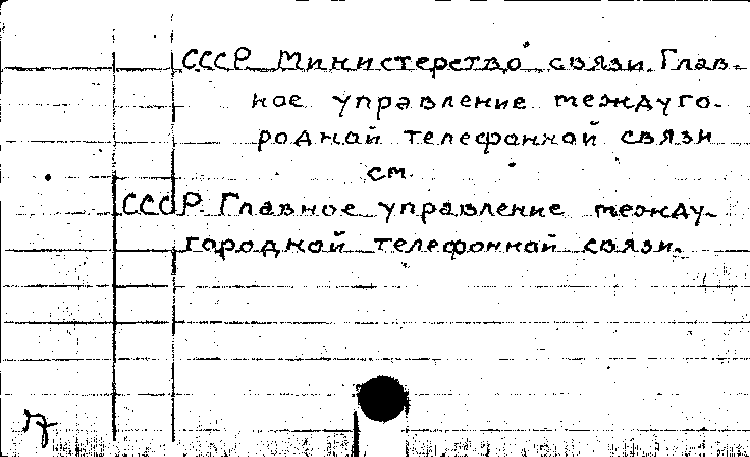 СССР. Министерство связи. Глав-
ное управление междуго-
родной телефонной связи
см.
СССР. Главное управление между-
городной телефонной связи.